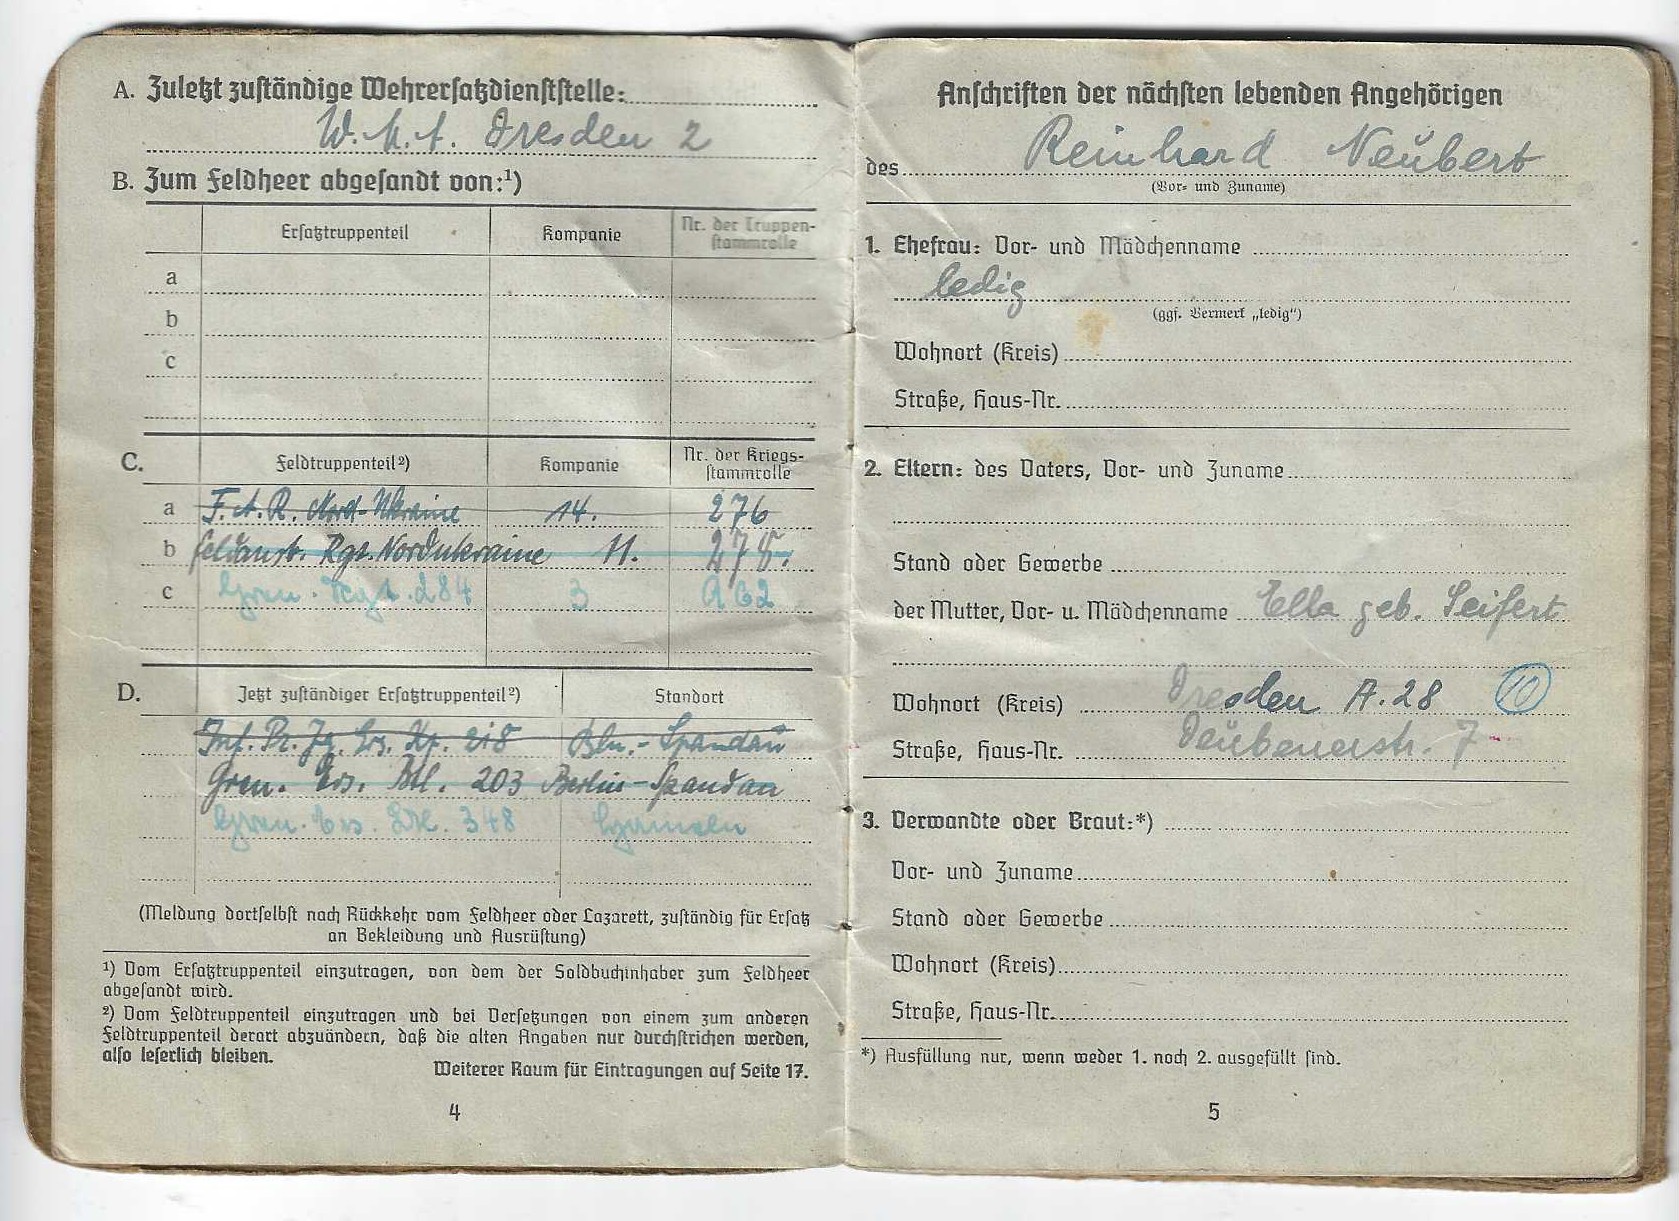 A. Zuletzt zuständige Wehrersatzdienststelle:
W.M.A. Dresden 2
B. Zum Feldheer abgesandt von:¹)
Ersatztruppenteil Kompanie Nr. der Truppen-
stammrolle
a
b
c
C. Feldtruppenteil²) Kompanie Nr. der Kriegs-
stammrolle
a F.A.R. Nord-Ukraine 14. 276
b Feldausb. Rgt. Nordukraine 11. 278.
c Gren. Regt. 284 3 A 62
D. Jetzt zuständiger Ersatztruppenteil²) Standort
Inf. Pz. Jg. Ers. Kp. 218 Bln.-Spandau
Gren. Ers. Btl. 203 Berlin-Spandau
Gren. Ers. 348
(Meldung dortselbst nach Rückkehr vom Feldheer oder Lazarett, zuständig für Ersatz
an Bekleidung und Ausrüstung)
¹) Vom Ersatztruppenteil einzutragen, von dem der Soldbuchinhaber zum Feldheer
abgesandt wird.
²) Vom Feldtruppenteil einzutragen und bei Versetzungen von einem zum anderen
Feldtruppenteil derart abzuändern, daß die alten Angaben nur durchstrichen werden,
also leserlich bleiben.
Weiterer Raum für Eintragungen auf Seite 17.
4
Anschriften der nächsten lebenden Angehörigen
des Reinhard Neubert
(Vor- und Zuname)
1. Ehefrau: Vor- und Mädchenname
ledig
(ggf. Vermerk „ledig“)
Wohnort (Kreis)
Straße, Haus-Nr.
2. Eltern: des Vaters, Vor- und Zuname
Stand oder Gewerbe
der Mutter, Vor- u. Mädchenname Ella geb. Seifert
Wohnort (Kreis) Dresden A.28 10
Straße, Haus-Nr. Deubenerstr. 7
3. Verwandte oder Braut:*)
Vor- und Zuname
Stand oder Gewerbe
Wohnort (Kreis)
Straße, Haus-Nr.
*) Ausfüllung nur, wenn weder 1. noch 2. ausgefüllt sind.
5